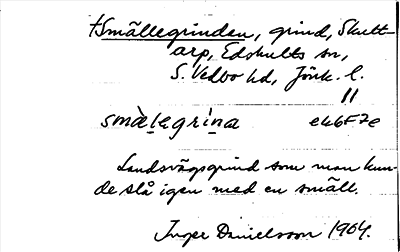 +Smällegrinden, grind, Skult-
arp, Edshults sn,
S. Vedbo hd, Jönk. l.
"
smälegrina e46F7e
Landsvägsgrind som man kun-
de slå igen med en smäll.
Inger Danielsson 1964.